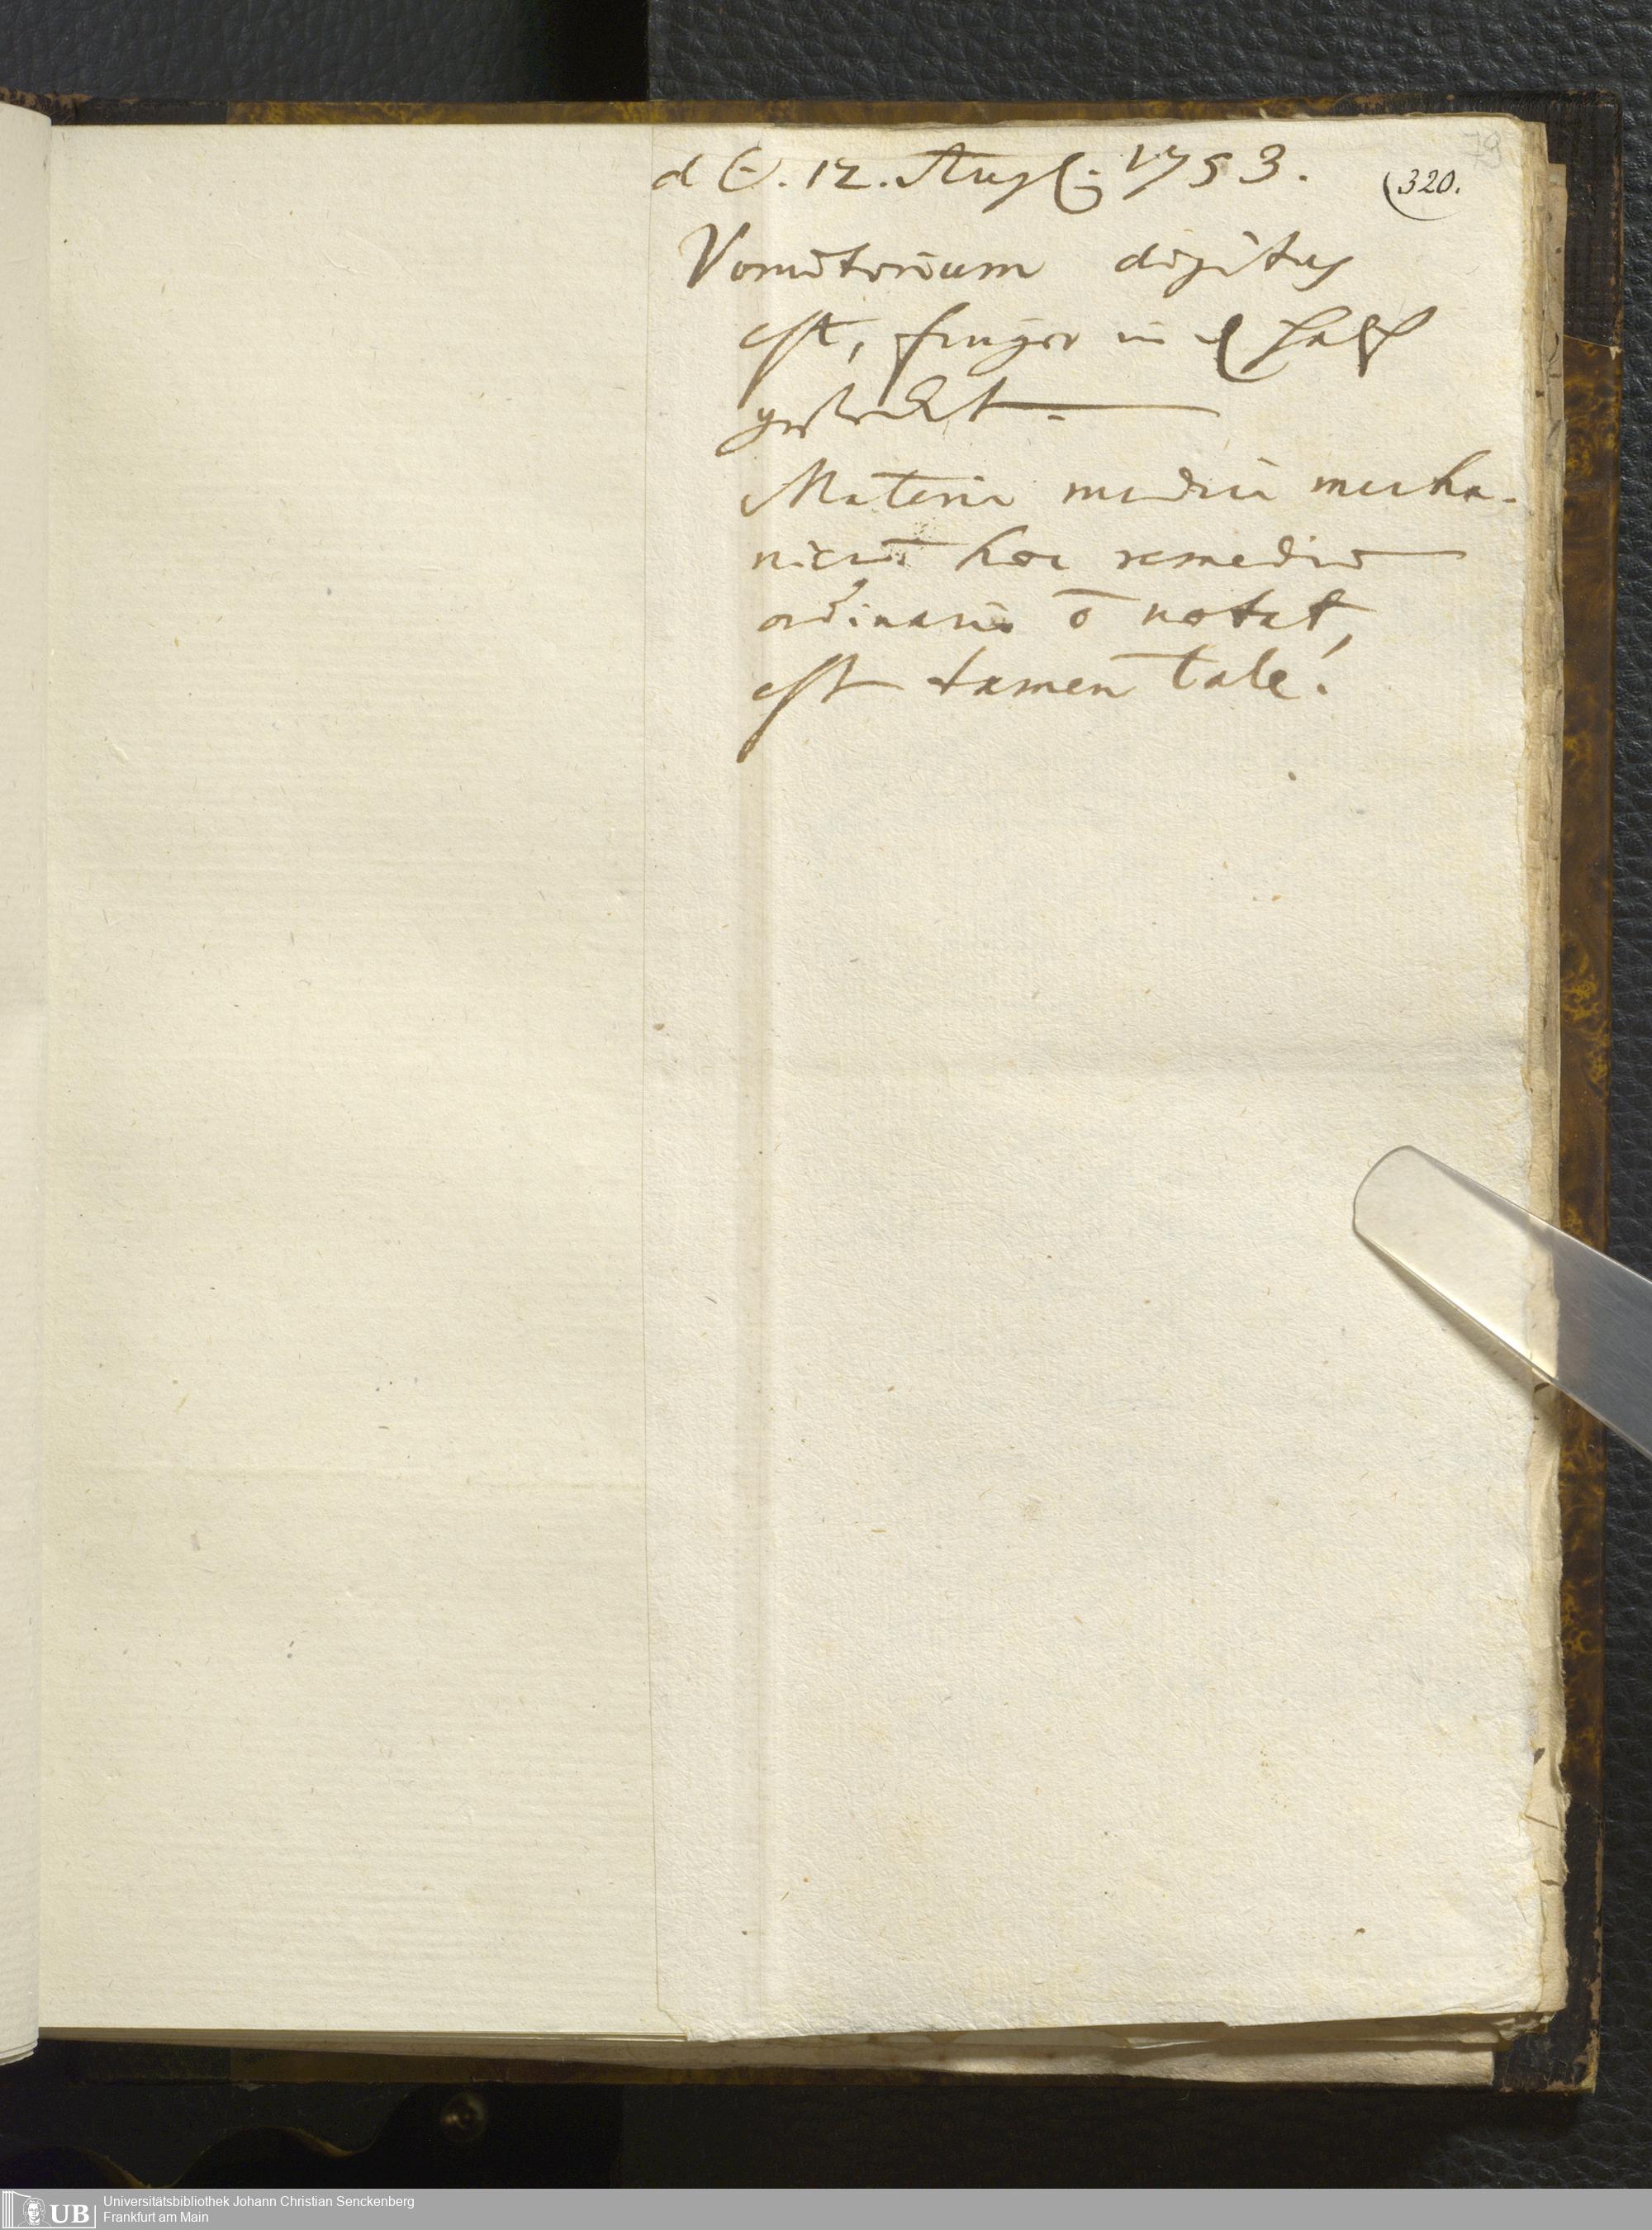 79
d ☉. 12. Aug. 1753. (320.
Vomitorium digitus
est, finger in d Halß
gesteckt.
Materia medica mecha-
nicu̅ hoc remedio
ordinario o̅ notat,
est tamen tale!
UB Universitätsbibliothek Johann Christian Senckenberg
Frankfurt am Main